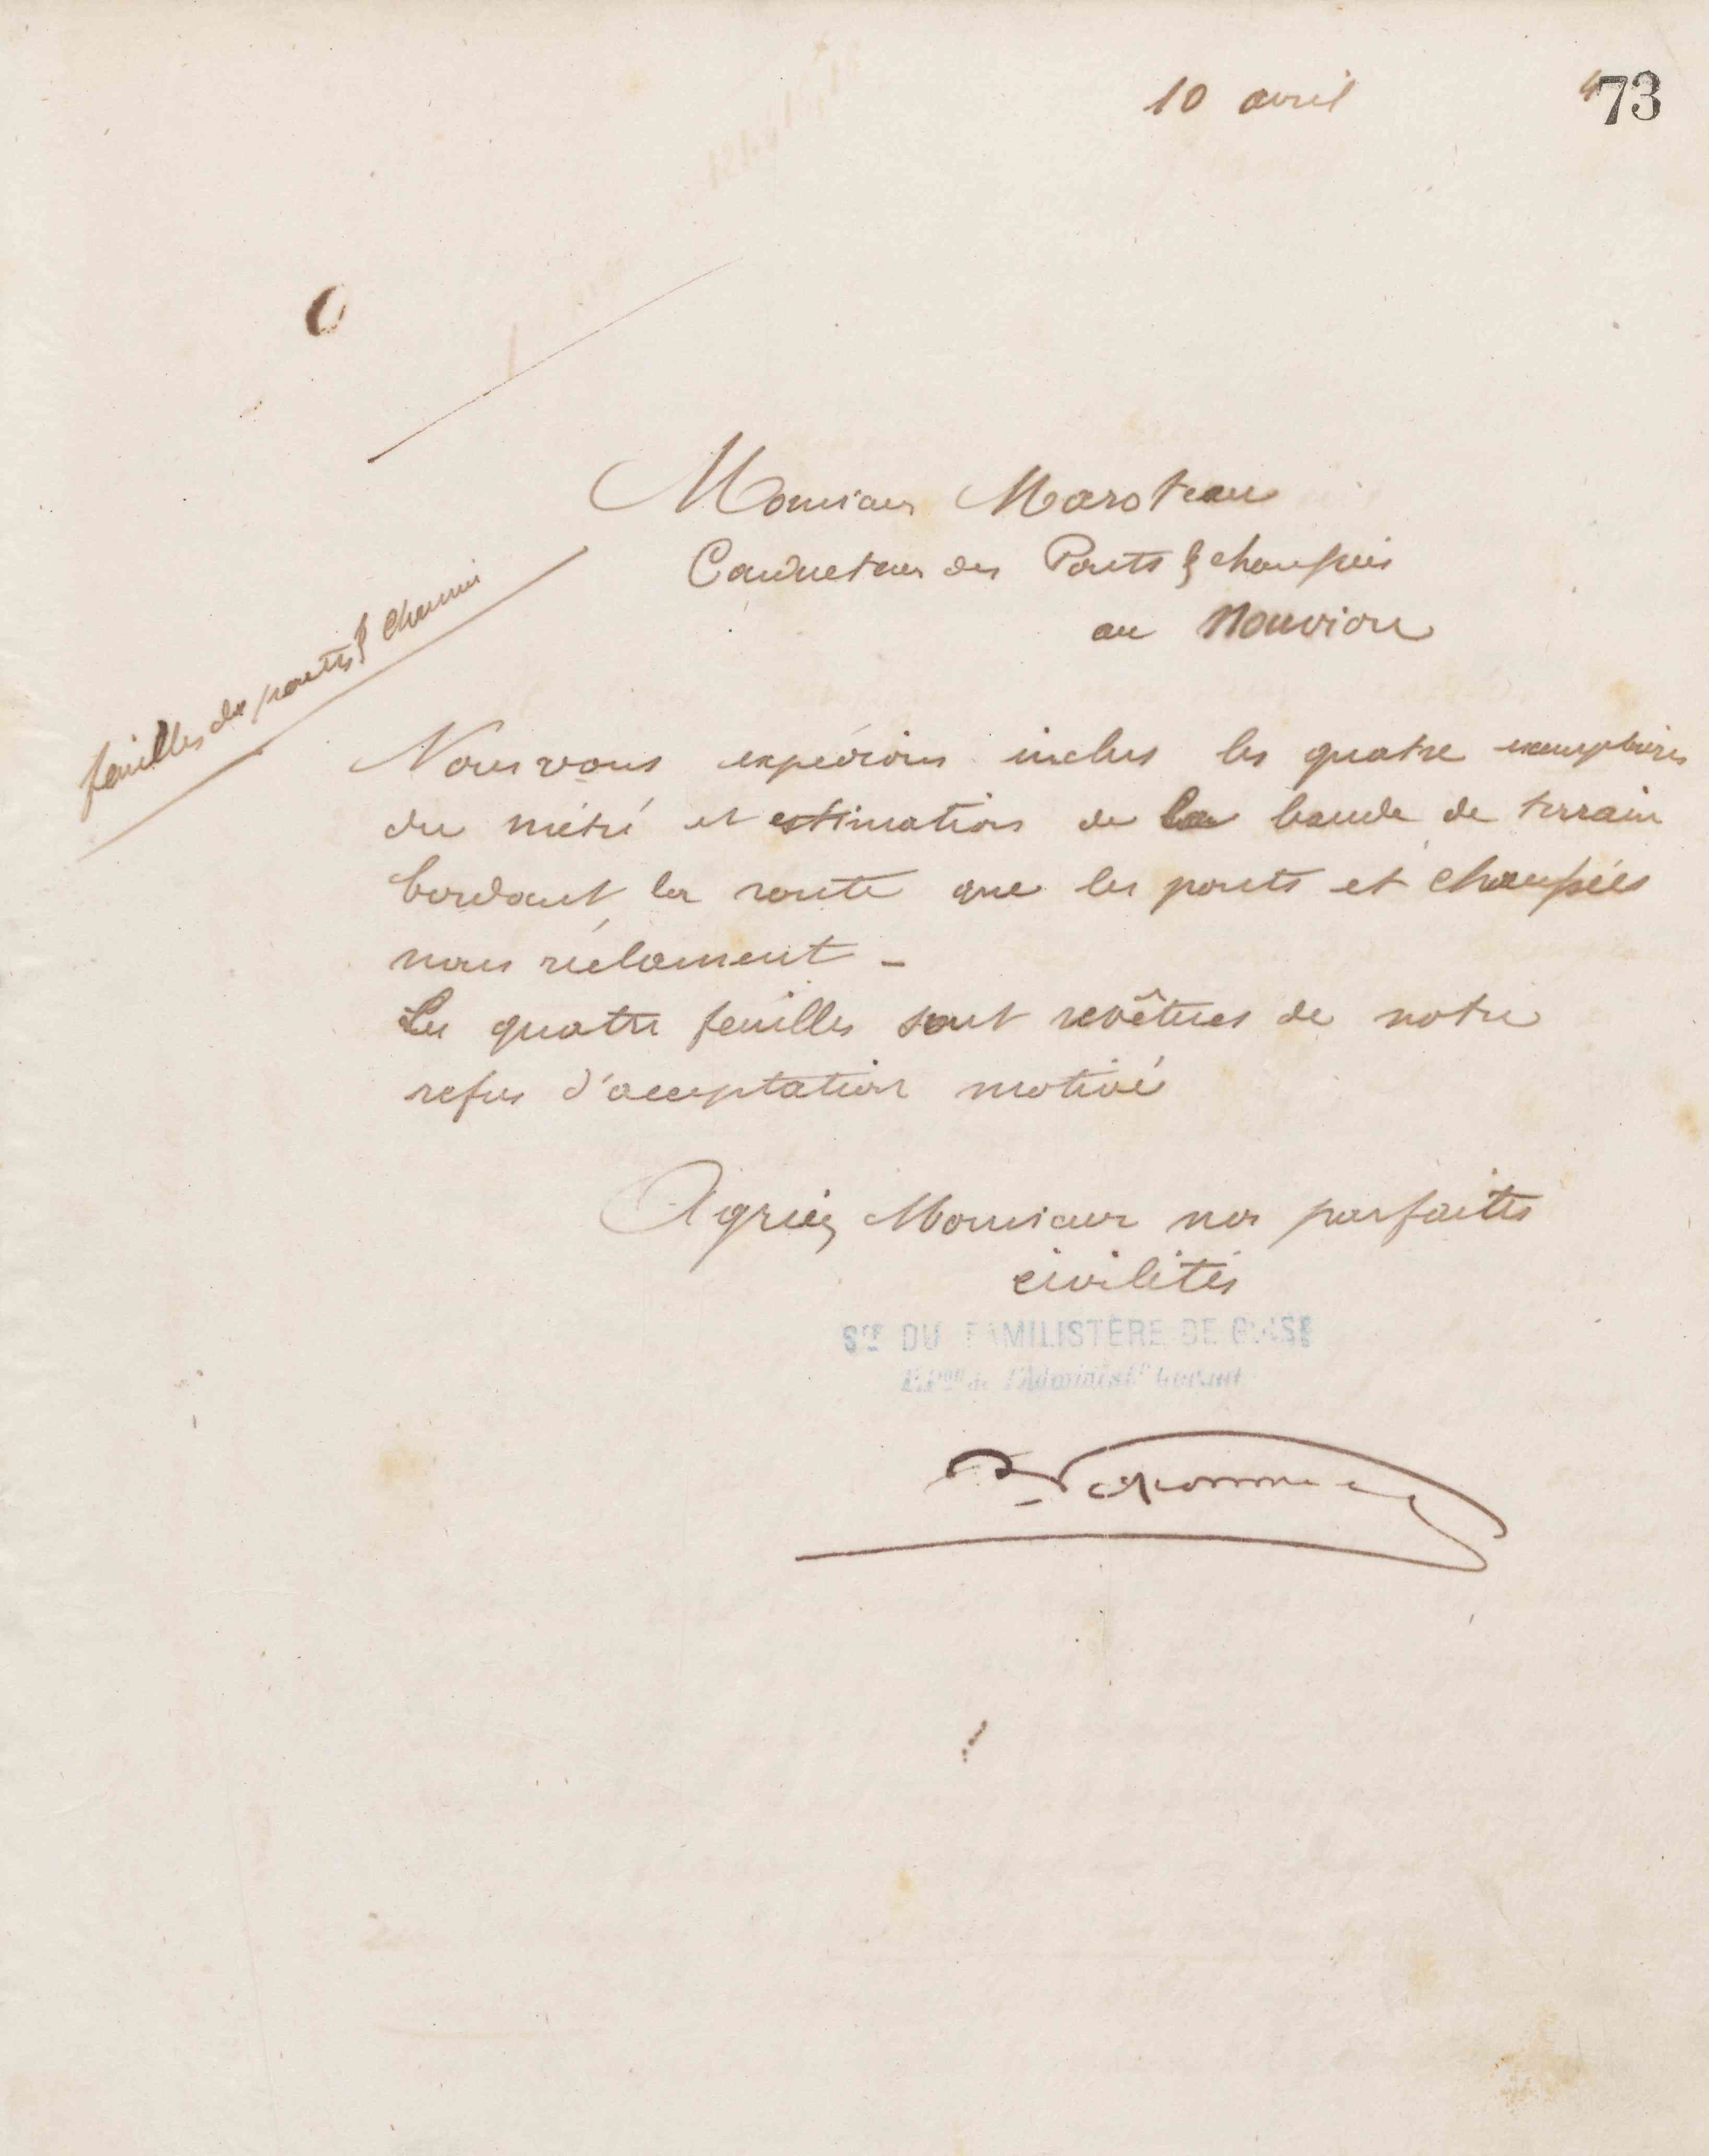 10 avril
473
feuilles des ponts & chemin
Monsieur Maroteau
Conducteur des Ponts & chaussées
au Nouvion
Nous vous expédions inclus les quatre exemplaires
du métré et estimation de la bande de terrain
bordant la route que les ponts et chaussées
nous réclament _
Les quatre feuilles sont revêtues de notre
refus d'acceptation motivé
Agréez Monsieur nos parfaites
civilités
Sté DU FAMILISTÈRE DE GUISE
P.Pon de l'Administr Gérant